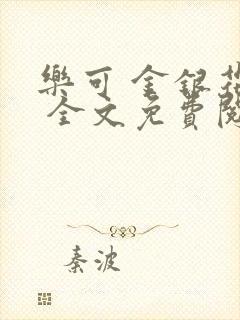 樂可 金銀花
全文免費閱
秦波